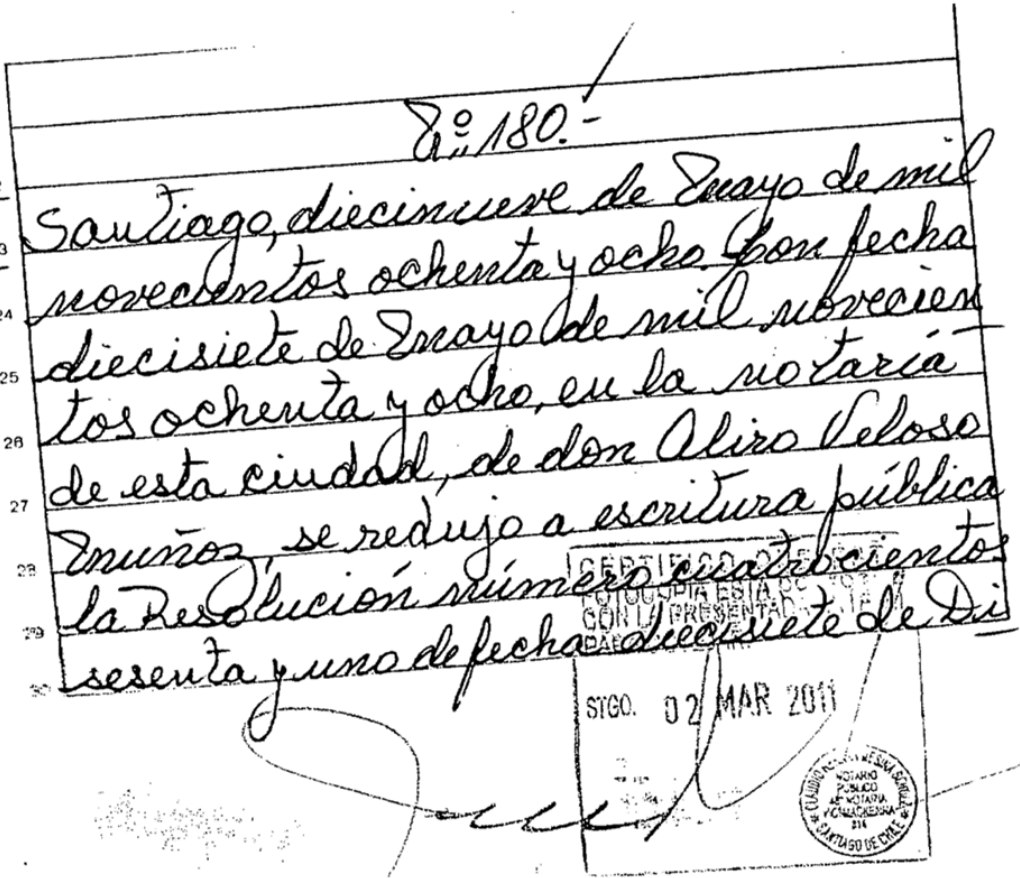 Nº 180.-
Santiago, diecinueve de Mayo de mil
23
novecientos ochenta y ocho. Con fecha
24
diecisiete de Mayo de mil novecien
25
tos ochenta y ocho, en la notaría
26
de esta ciudad, de don Aliro Veloso
27
Muñoz, se redujo a escritura pública
28
la Resolución número cuatrocientos
29
sesenta y uno de fecha diecisiete de Di
30
CERTIFICO
FOTOCOPIA ESTA
CON LA PRESENTADA
STGO. 02 MAR 2011
NOTARIO
PUBLICO
NOTARIA
SANTIAGO DE CHILE